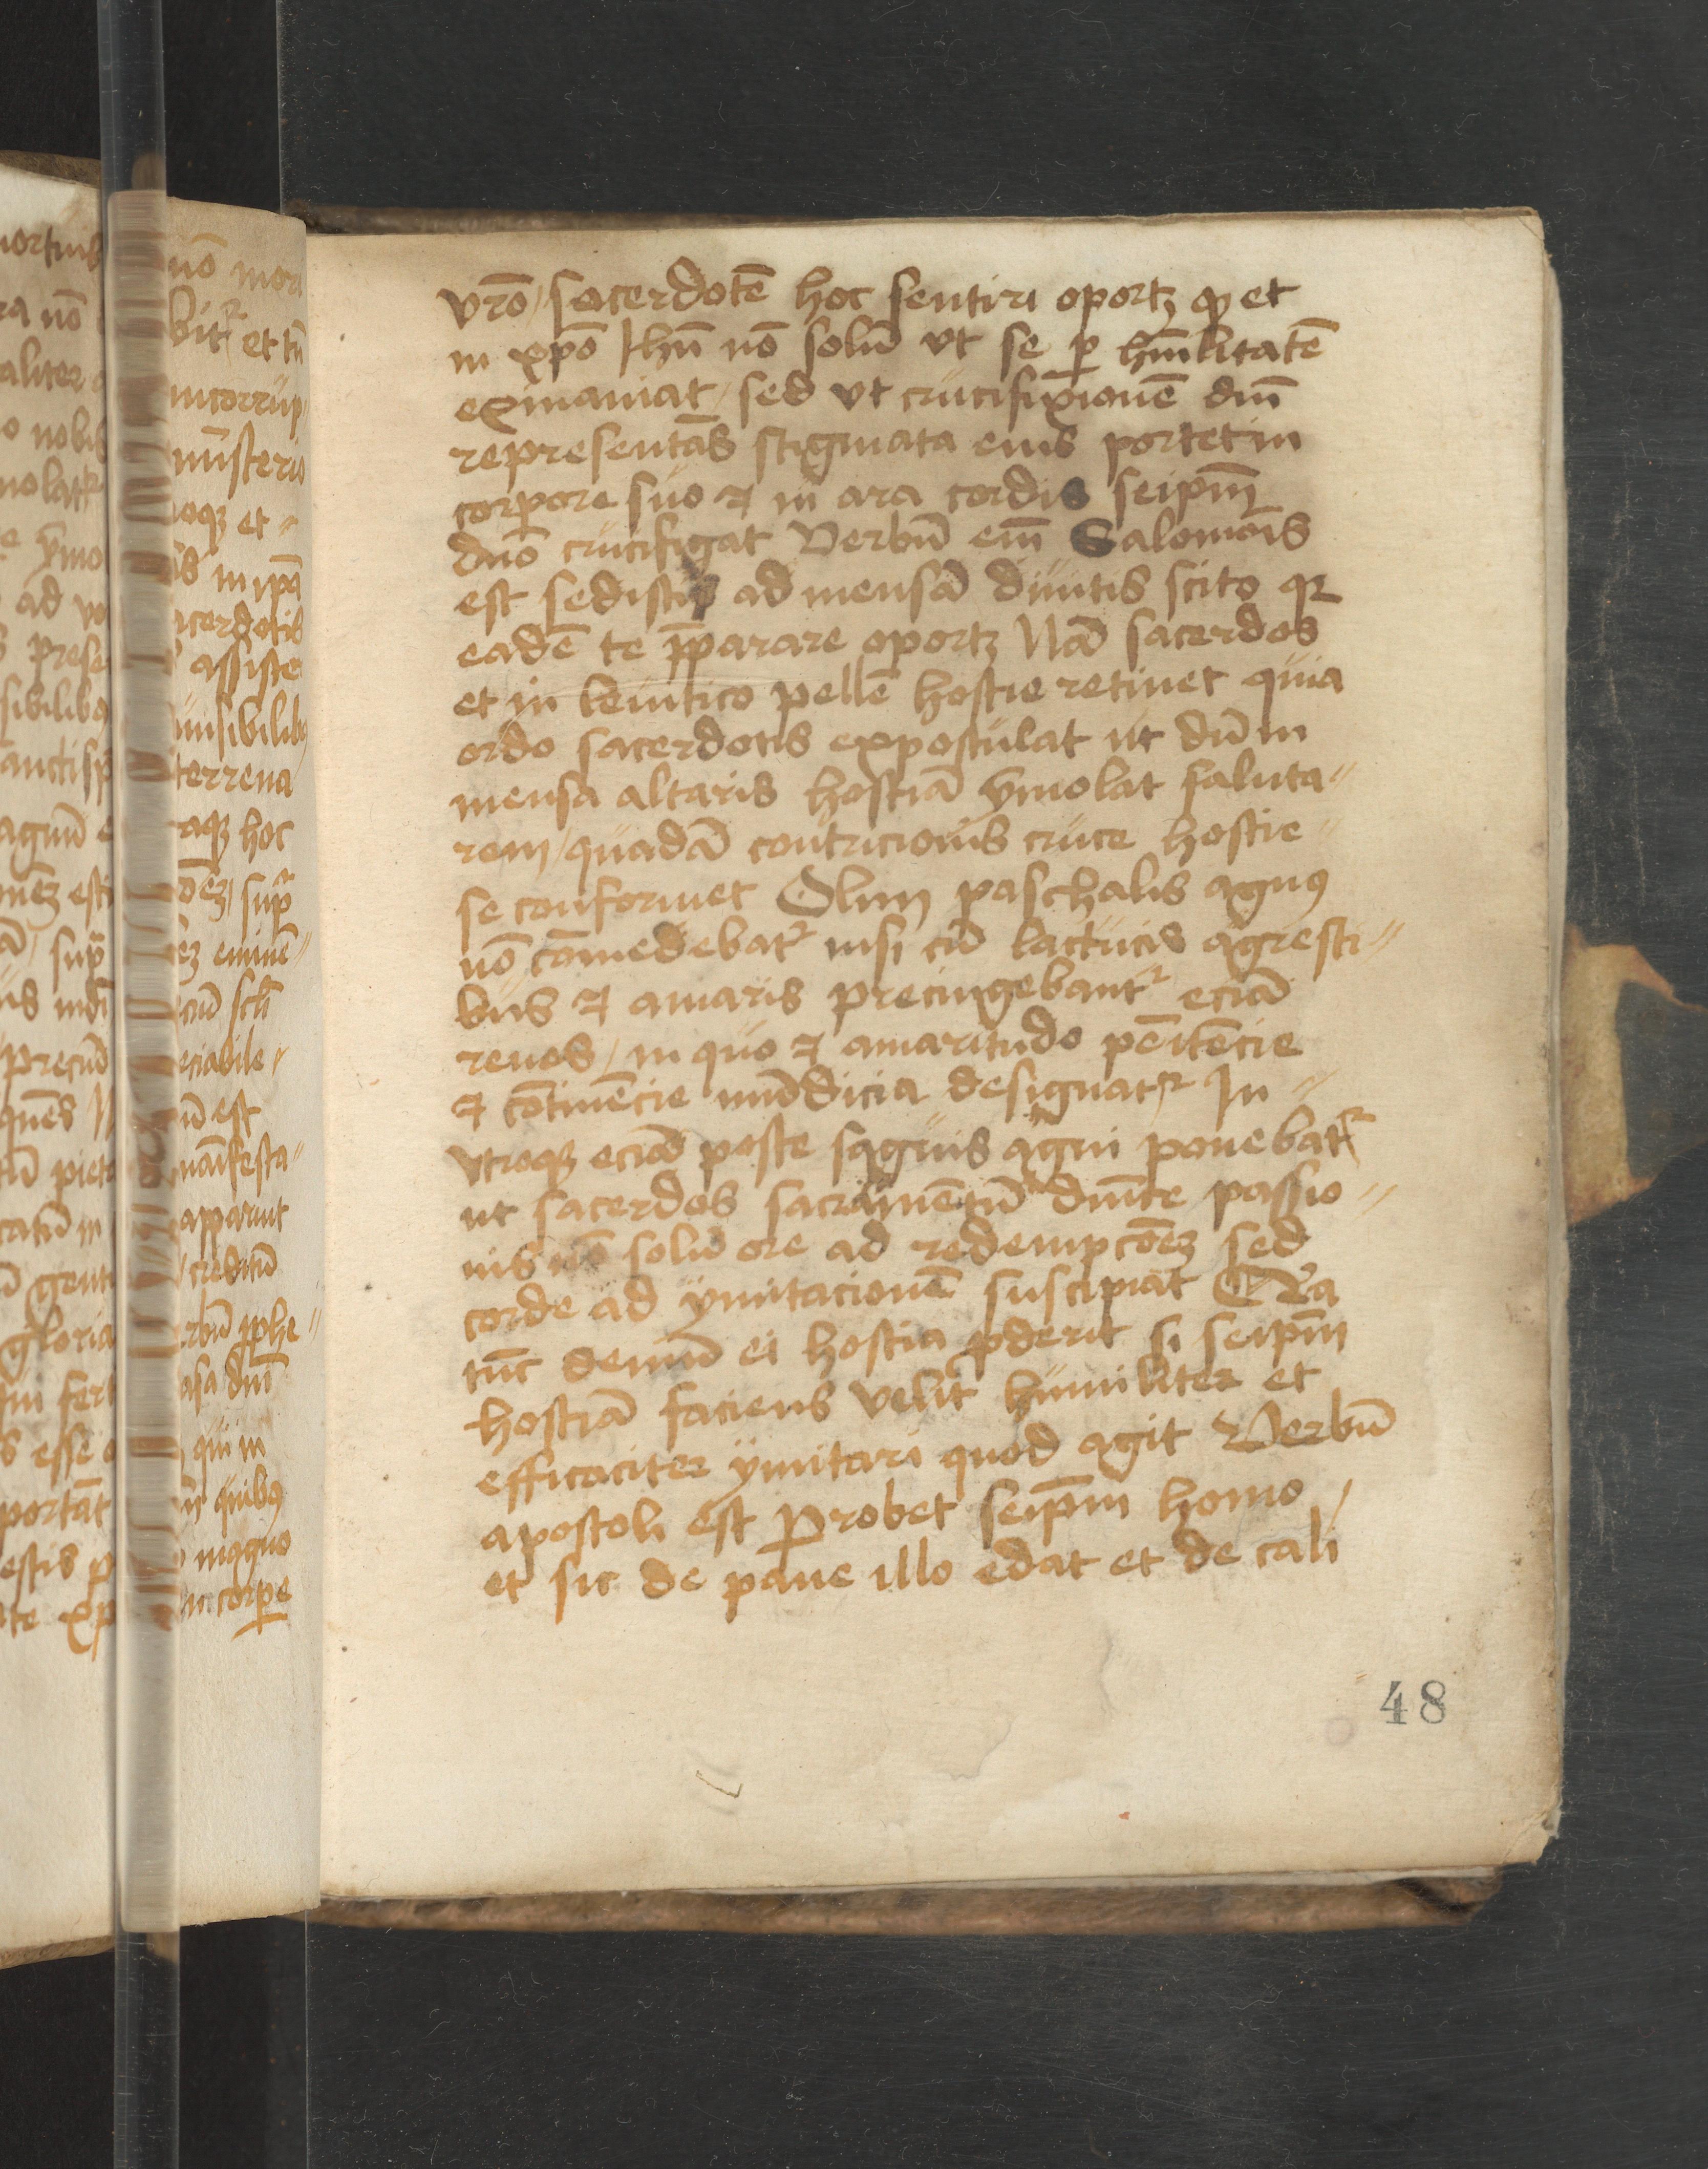 vrō / sacerdotē hoc sentiri oportꝫ qđ et
in xp̄o Ihū nō solū vt se ꝑ hūilitatē
exinaniat / sed vt crucifixionē dnī
representās stigmata eius portet in
corpore suo ⁊ in ara cordis seipm̄
dnō crucifigat Verbū em̄ Salomōis
est sedisti ad mensā diuitis scito qꝛ
eadē te p̄parare oportꝫ Nā sacerdos
et in leuitico pellē hostie retinet quia
ordo sacerdotis expostulat ut dū in
mensa altaris hostiā ymolat saluta⸗
rem / quadā contricionis cruce hostie
se conformet Olim paschalis agnꝰ
nō cōmedebatᷣ nisi cū lactucis agresti⸗
bus ⁊ amaris precingebantᷣ eciā
renes / in quo ⁊ amaritudo pēitēcie
⁊ cōtinēcie mūdicia designatᷣ In⸗
vtroqꝫ eciā poste sāguis agni ponebatᷣ
ut sacerdos sacramētū dnīce passio⸗
nis nō solū ore ad redempcōeꝫ sed
corde ad ymitacionē suscipiat Qꝛa
tūc demū ei hostia ꝓderit si seipm̄
hostiā faciens velit humiliter et
efficaciter ymitari quod agit Verbū
apostoli est Probet seipm̄ homo /
et sic de pane illo edat et de cali
48